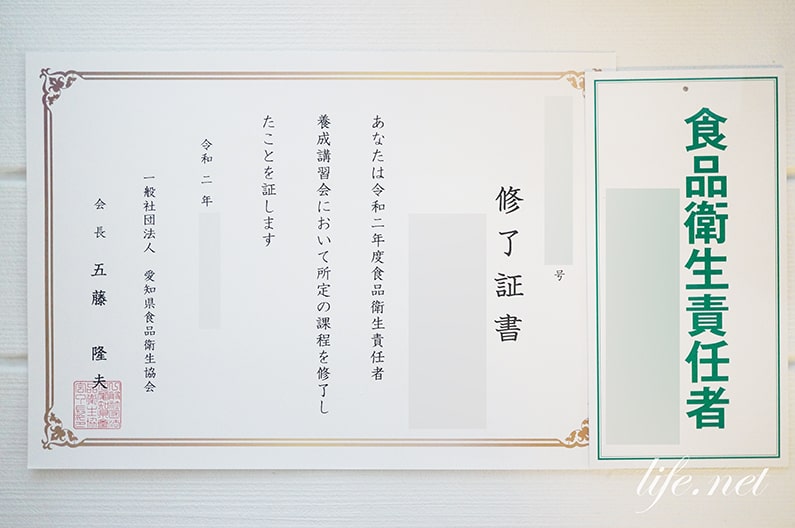 食品衛生責任者
号
修了証書
あなたは令和二年度食品衛生責任者
養成講習会において所定の課程を修了し
たことを証します
令和二年
一般社団法人 愛知県食品衛生協会
会長 五藤 隆夫
life.net